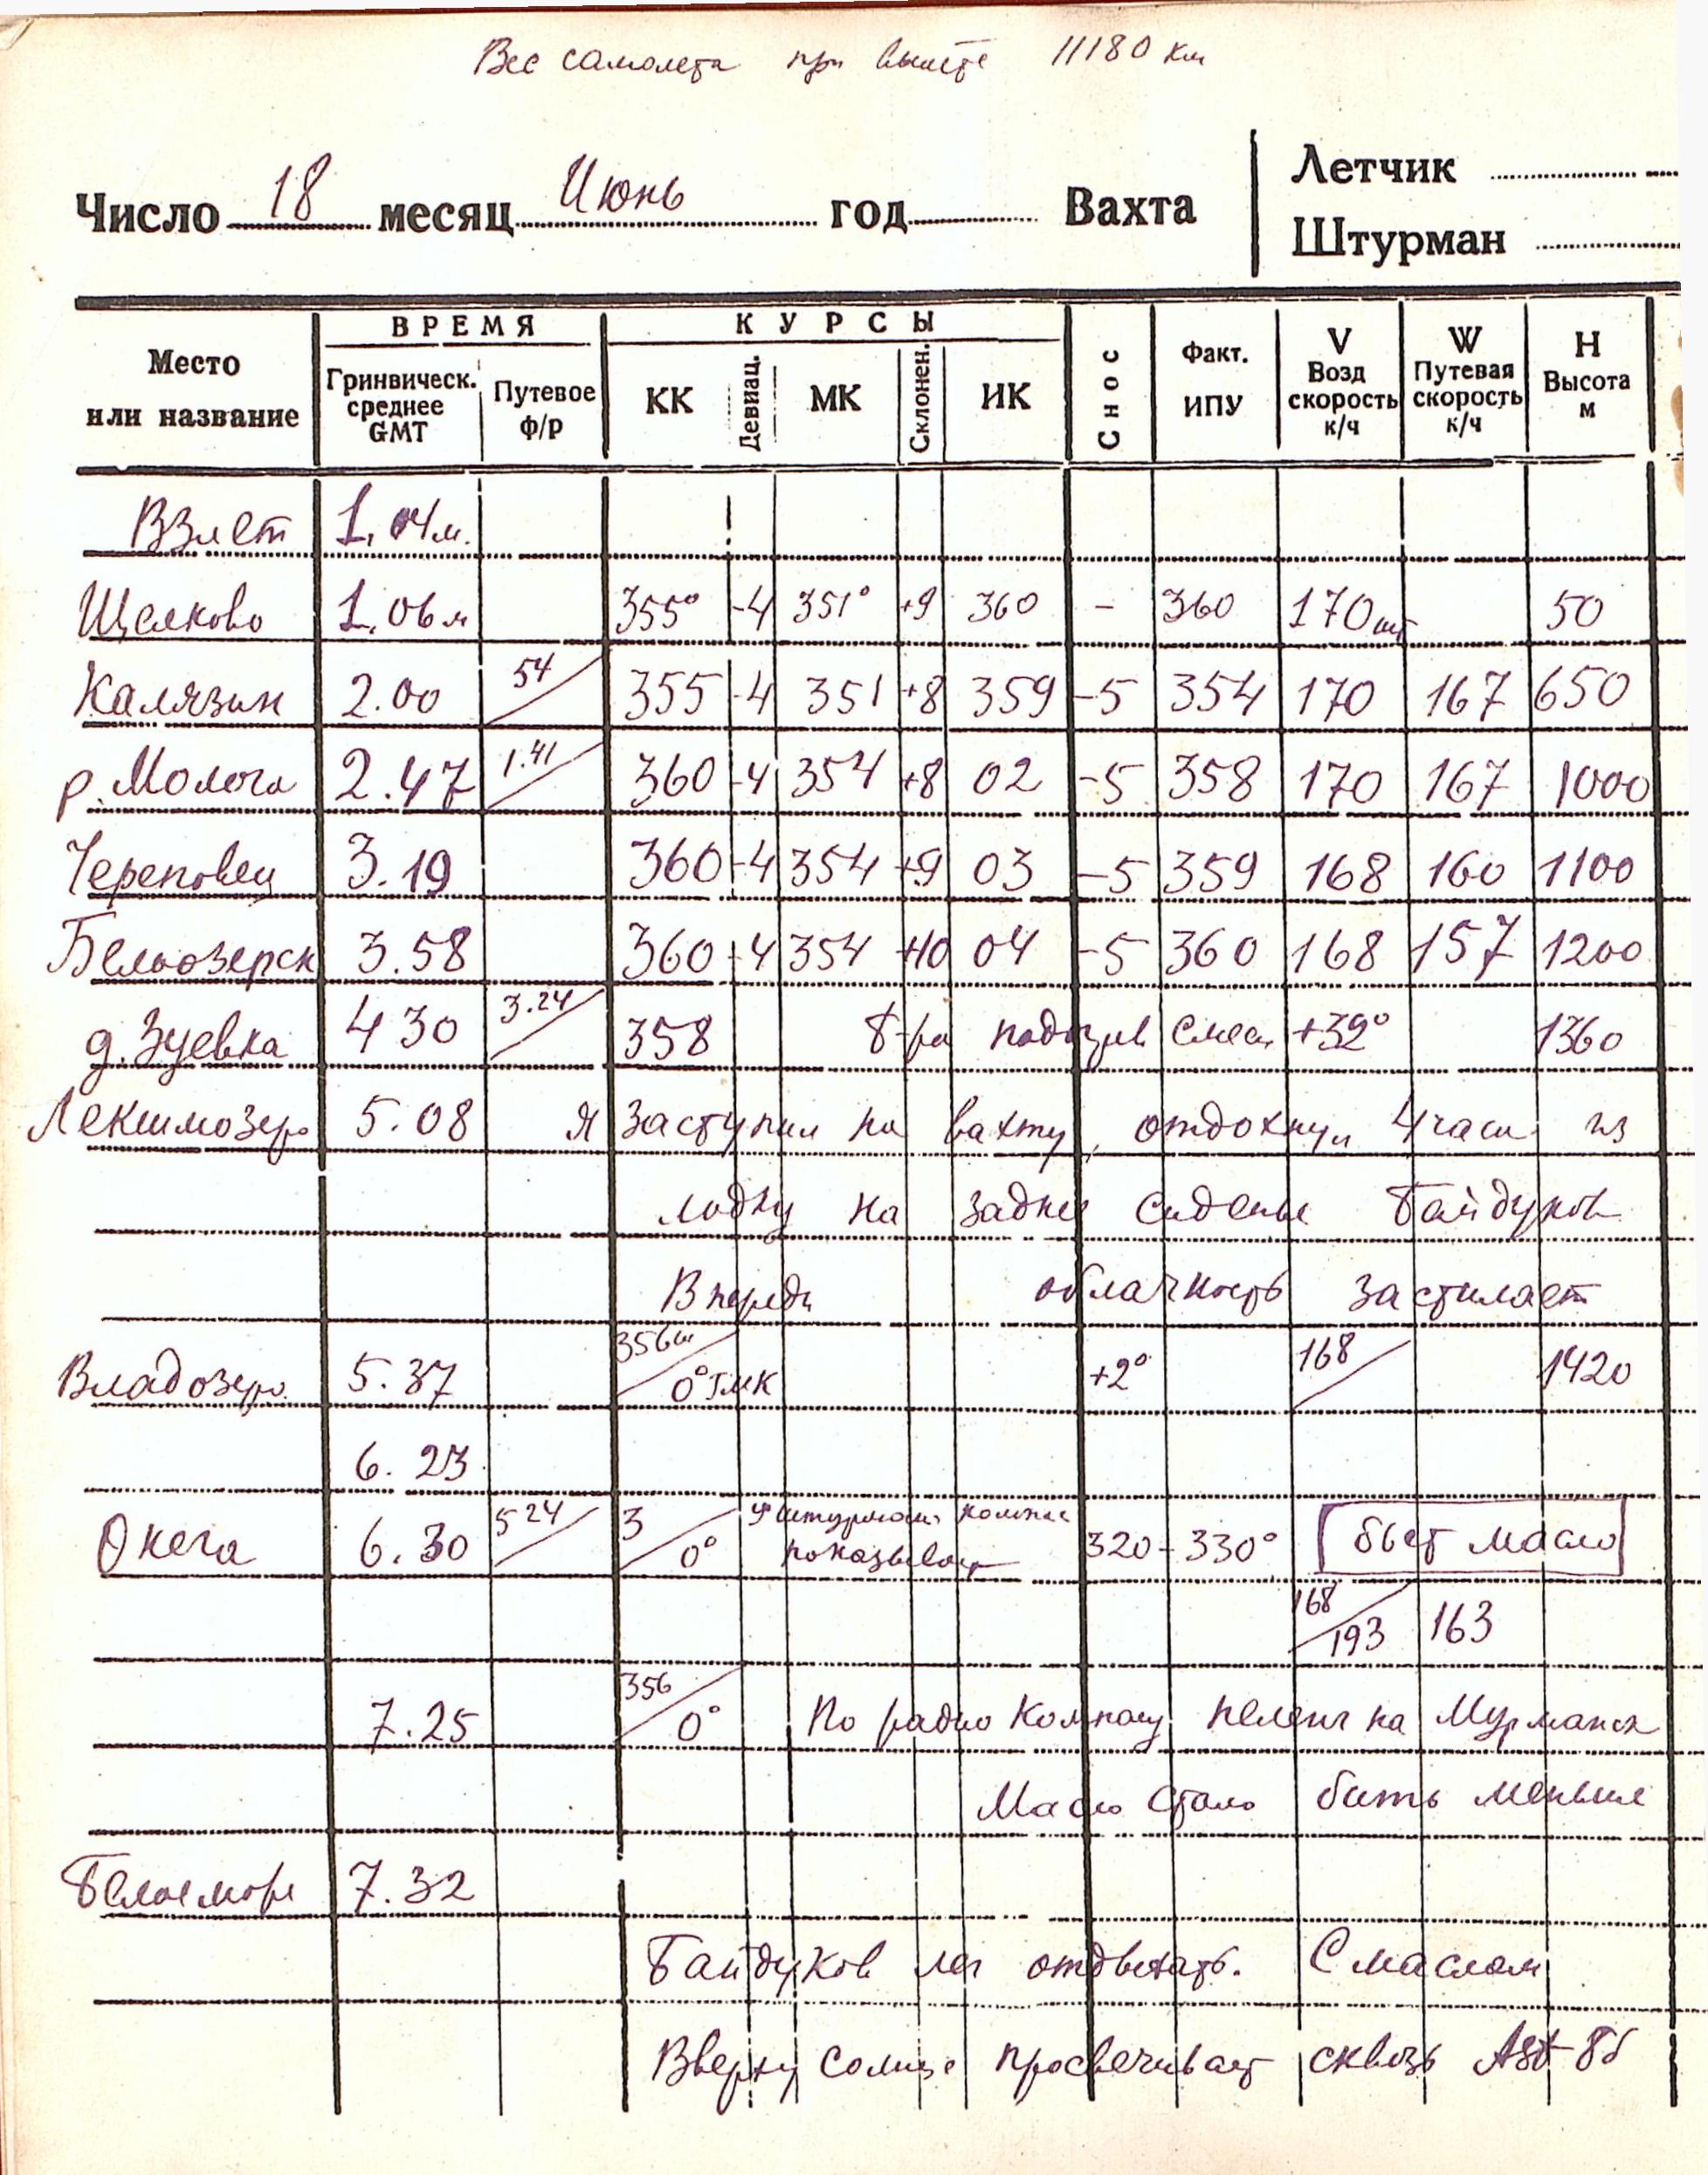 Вес самолета при вылете 11180 км
Число 18 месяц Июнь год Вахта
Летчик
Штурман
Место или название
ВРЕМЯ
Гринвическ. среднее GMT
Путевое ф/р
КУРСЫ
КК Девиац. МК Склонен. ИК
Снос
Факт. ИПУ
V Возд скорость к/ч
W Путевая скорость к/ч
Н Высота м
Взлет 1.04м.
Щелково 1.06м 355° -4 351° +9 360 – 360 170 50
Калязин 2.00 54 355 -4 351 +8 359 -5 354 170 167 650
р. Молога 2.47 1.41 360 -4 354 +8 02 -5 358 170 167 1000
Череповец 3.19 360 -4 354 +9 03 -5 359 168 160 1100
Белоозерск 3.58 360 -4 354 +10 04 -5 360 168 157 1200
д. Зуевка 4 30 3.24 358 Т-ра подогрев смеси +32° 1360
Лекшмозеро 5.08 Я заступил на вахту, отдохнул 4 часа из
лодку на заднее сиденье Байдуков
Впереди облачность застилает
Владозеро 5.37 356 0° ГМК +2° 168 1420
6. 23
Онега 6.30 5 24 3 0° штурмана компас
показывает 320 - 330° бьет масло
168 193 163
7.25 356 0° По радио компасу пеленг на Мурманск
Масло стало бить меньше
Белое море 7.32
Байдуков лег отдыхать. С маслом
Вверху солнце просвечивает сквозь Ast-8б